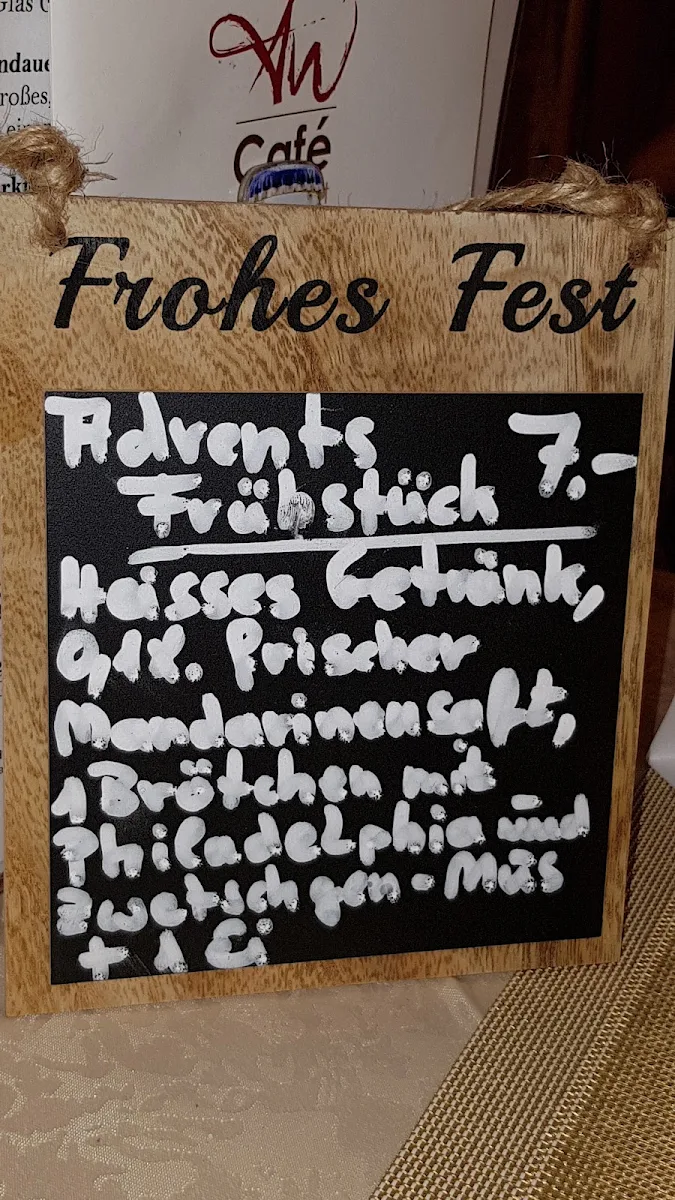 Glas
ndaue
roßes,
AW
Café
Frohes Fest
Advents 7.-
Frühstück
Heisses Getränk,
0,1l. frischer
Mandarinensaft,
1 Brötchen mit
Philadelphia und
Zwetschgen-Mus
+ 1 Ei